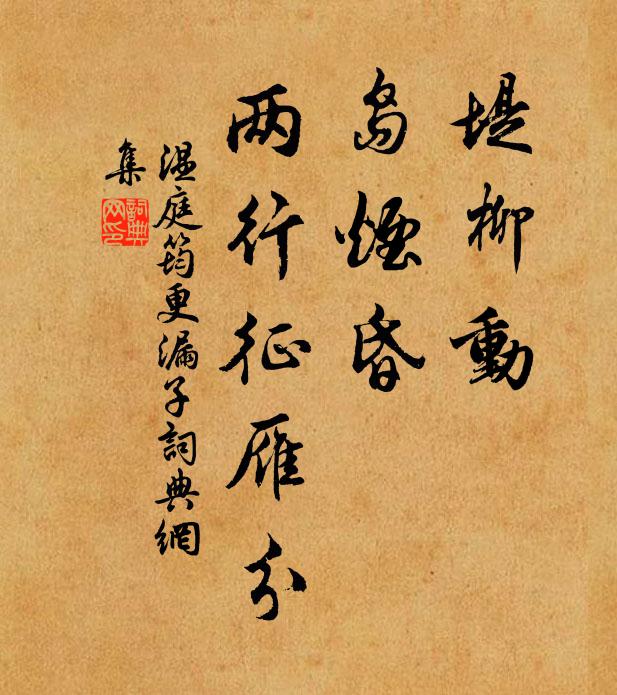 堤柳動
島煙昏
两行征雁分
温庭筠更漏子詞典網
集
詞典
网印